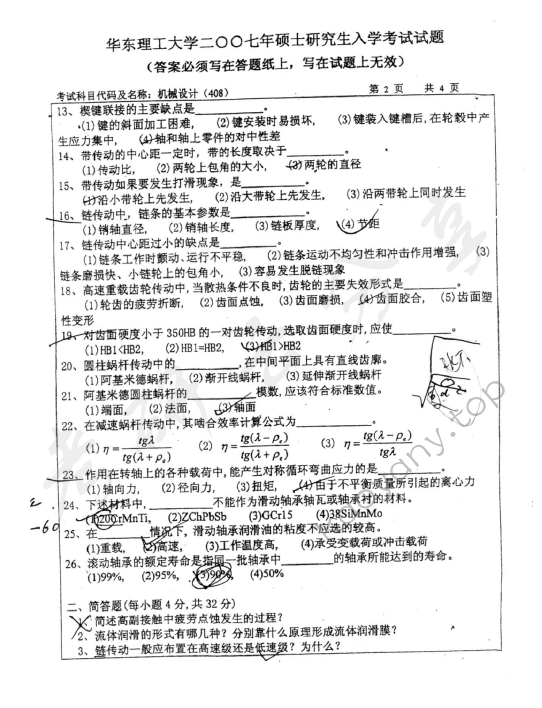 华东理工大学二〇〇七年硕士研究生入学考试试题
(答案必须写在答题纸上，写在试题上无效)
考试科目代码及名称：机械设计（408） 第 2 页 共 4 页
13、楔键联接的主要缺点是________。
(1)键的斜面加工困难， (2)键安装时易损坏， (3)键装入键槽后,在轮毂中产
生应力集中， (4)轴和轴上零件的对中性差
14、带传动的中心距一定时，带的长度取决于________。
(1)传动比， (2)两轮上包角的大小， (3)两轮的直径
15、带传动如果要发生打滑现象，是________。
(1)沿小带轮上先发生， (2)沿大带轮上先发生， (3)沿两带轮上同时发生
16、链传动中，链条的基本参数是________。
(1)销轴直径， (2)销轴长度， (3)链板厚度， (4)节距
17、链传动中心距过小的缺点是________。
(1)链条工作时颤动、运行不平稳， (2)链条运动不均匀性和冲击作用增强， (3)
链条磨损快、小链轮上的包角小， (3)容易发生脱链现象
18、高速重载齿轮传动中,当散热条件不良时,齿轮的主要失效形式是________。
(1)轮齿的疲劳折断， (2)齿面点蚀， (3)齿面磨损， (4)齿面胶合， (5)齿面塑
性变形
19、对齿面硬度小于 350HB 的一对齿轮传动,选取齿面硬度时,应使________。
(1)HB1<HB2， (2)HB1=HB2， (3)HB1>HB2
20、圆柱蜗杆传动中的________,在中间平面上具有直线齿廓。
(1)阿基米德蜗杆， (2)渐开线蜗杆， (3)延伸渐开线蜗杆
21、阿基米德圆柱蜗杆的________模数,应该符合标准数值。
(1)端面， (2)法面， (3)轴面
22、在减速蜗杆传动中,其啮合效率计算公式为________。
(1) η = tgλ / tg(λ + ρe) (2) η = tg(λ − ρe) / tg(λ + ρe) (3) η = tg(λ − ρe) / tgλ
23、作用在转轴上的各种载荷中,能产生对称循环弯曲应力的是________。
(1)轴向力， (2)径向力， (3)扭矩， (4)由于不平衡质量所引起的离心力
24、下述材料中，________不能作为滑动轴承轴瓦或轴承衬的材料。
-60
(1)20CrMnTi, (2)ZChPbSb (3)GCr15 (4)38SiMnMo
25、在________情况下，滑动轴承润滑油的粘度不应选的较高。
(1)重载， (2)高速， (3)工作温度高， (4)承受变载荷或冲击载荷
26、滚动轴承的额定寿命是指同一批轴承中________的轴承所能达到的寿命。
(1)99%, (2)95%, (3)90%, (4)50%
二、简答题(每小题 4 分,共 32 分)
1、简述高副接触中疲劳点蚀发生的过程？
2、流体润滑的形式有哪几种？分别靠什么原理形成流体润滑膜？
3、链传动一般应布置在高速级还是低速级？为什么？